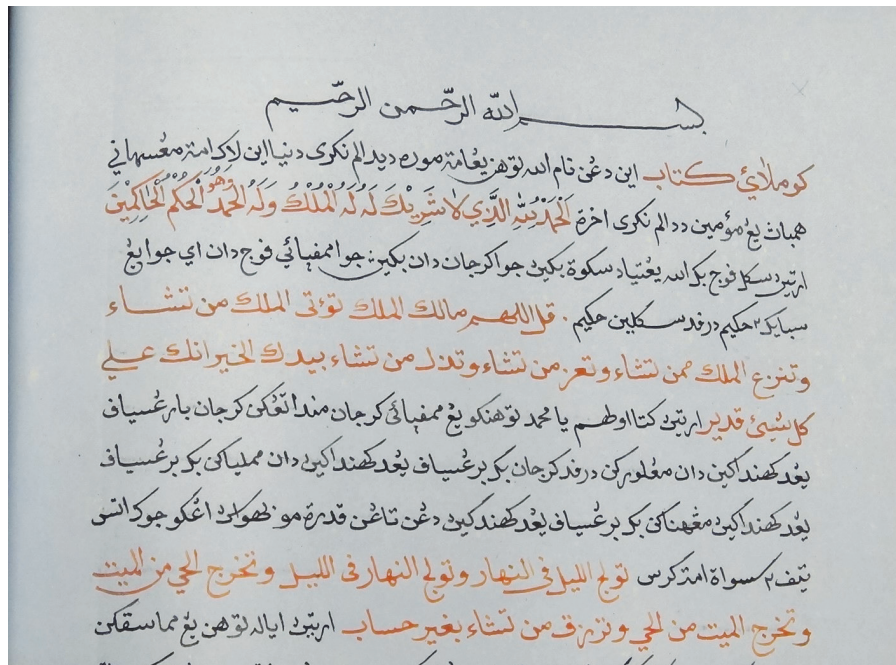 بسم الله الرحمن الرحيم
كوملائي كتاب اين دغن نام الله توهن يڠامة موره ديدالم نكرى دنيا اين لاكي امة مڠسهاني
همباث يڠ مؤمين ددالم نكرى اخرة اَلْحَمْدُ لِلّٰهِ الَّذِي لَا شَرِيْكَ لَهُ لَهُ الْمُلْكُ وَلَهُ الْحَمْدُ وَهُوَ اَلْحَكَمُ الْحَاكِمِيْنَ
ارتين سكل فوج بكى الله يڠتياد سكوة بكين جوا كرجان دان بكين جوا ممفپائي فوج دان اي جوا يڠ
سبايك٢ حكيم درفد سكلين حكيم . قل اللهم مالك الملك تؤتى الملك من تشاء
وتنزع الملك ممن تشاء وتعز من تشاء وتذل من تشاء بيدك الخير انك على
كل شيئ قدير ارتين كتا اولهم يا محمد توهنكو يڠ ممفپائي كرجان منداتڠكن كرجان بارڠسياف
يڠد كهنداكين دان مڠلوركن درفد كرجان بكى برڠسياف يڠد كهنداكين دان مملياكن بكى برڠسياف
يڠد كهنداكين مڠهناكن بكى برڠسياف يڠد كهندكين دڠن تاڠن قدرة مو بهواس اڠكو جوك اتس
تيف٢ سسواة امة كرس تولج الليل فى النهار وتولج النهار فى الليل وتخرج الحي من الميت
وتخرج الميت من الحي وترزق من تشاء بغير حساب ارتين اياله توهن يڠ مماسقكن